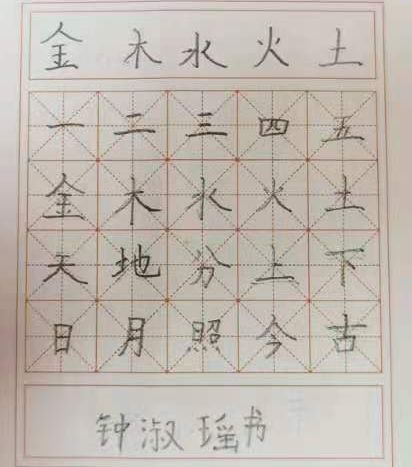 金木水火土
一二三四五
金木水火土
天地分上下
日月照今古
钟淑瑶书